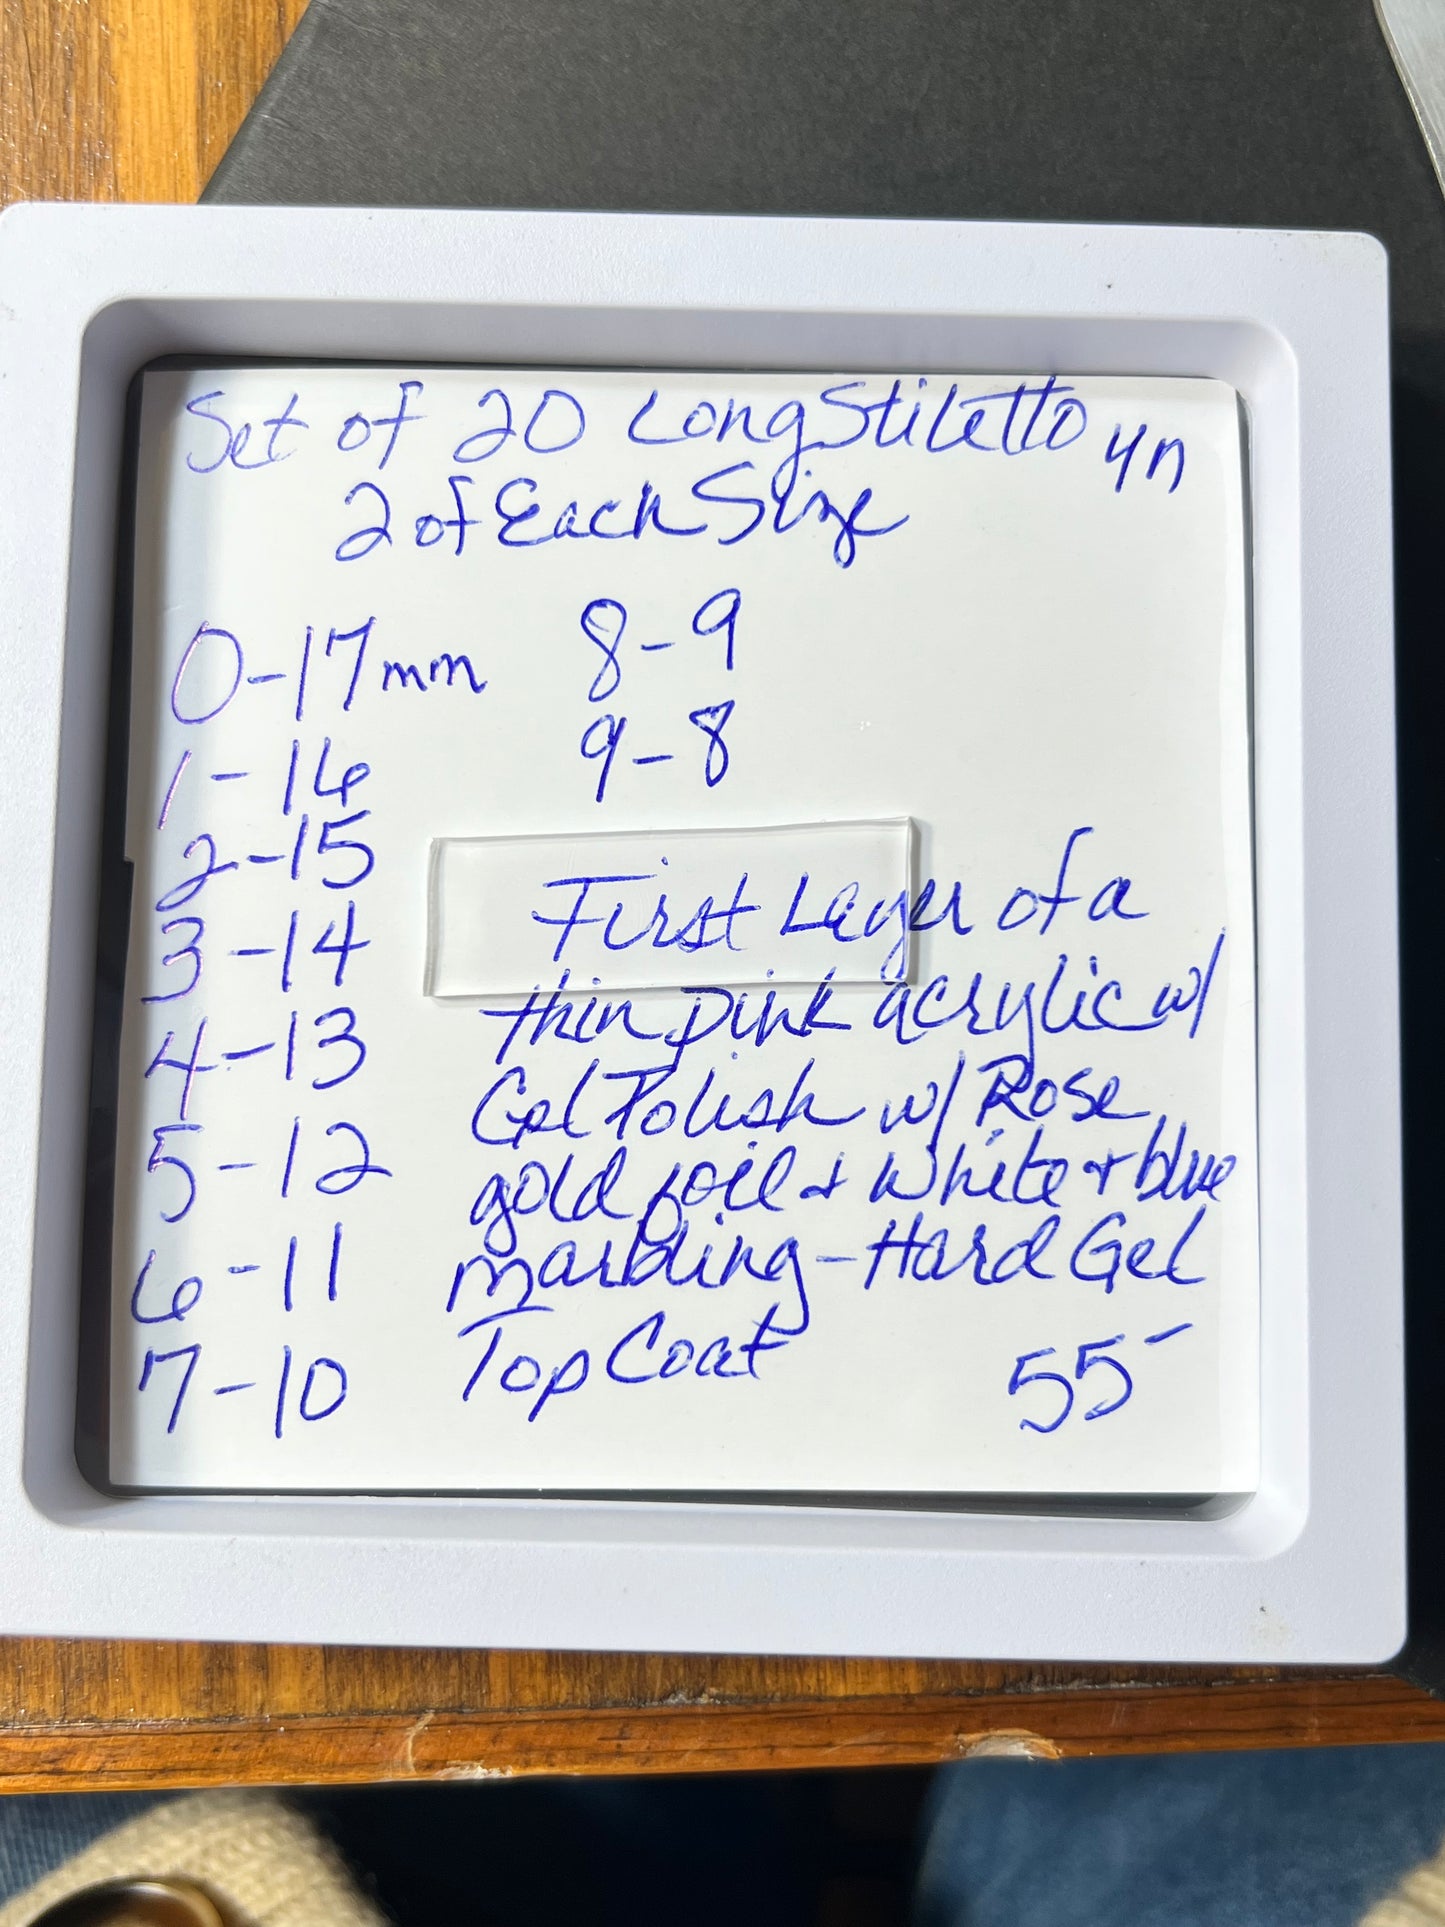 Set of 20 Long Stiletto
2 of Each Size
0-17mm
1-16
2-15
3-14
4-13
5-12
6-11
7-10
8-9
9-8
First Layer of a
thin pink acrylic w/
Gel Polish w/ Rose
gold foil & White & blue
marbling - Hard Gel
Top Coat
55-